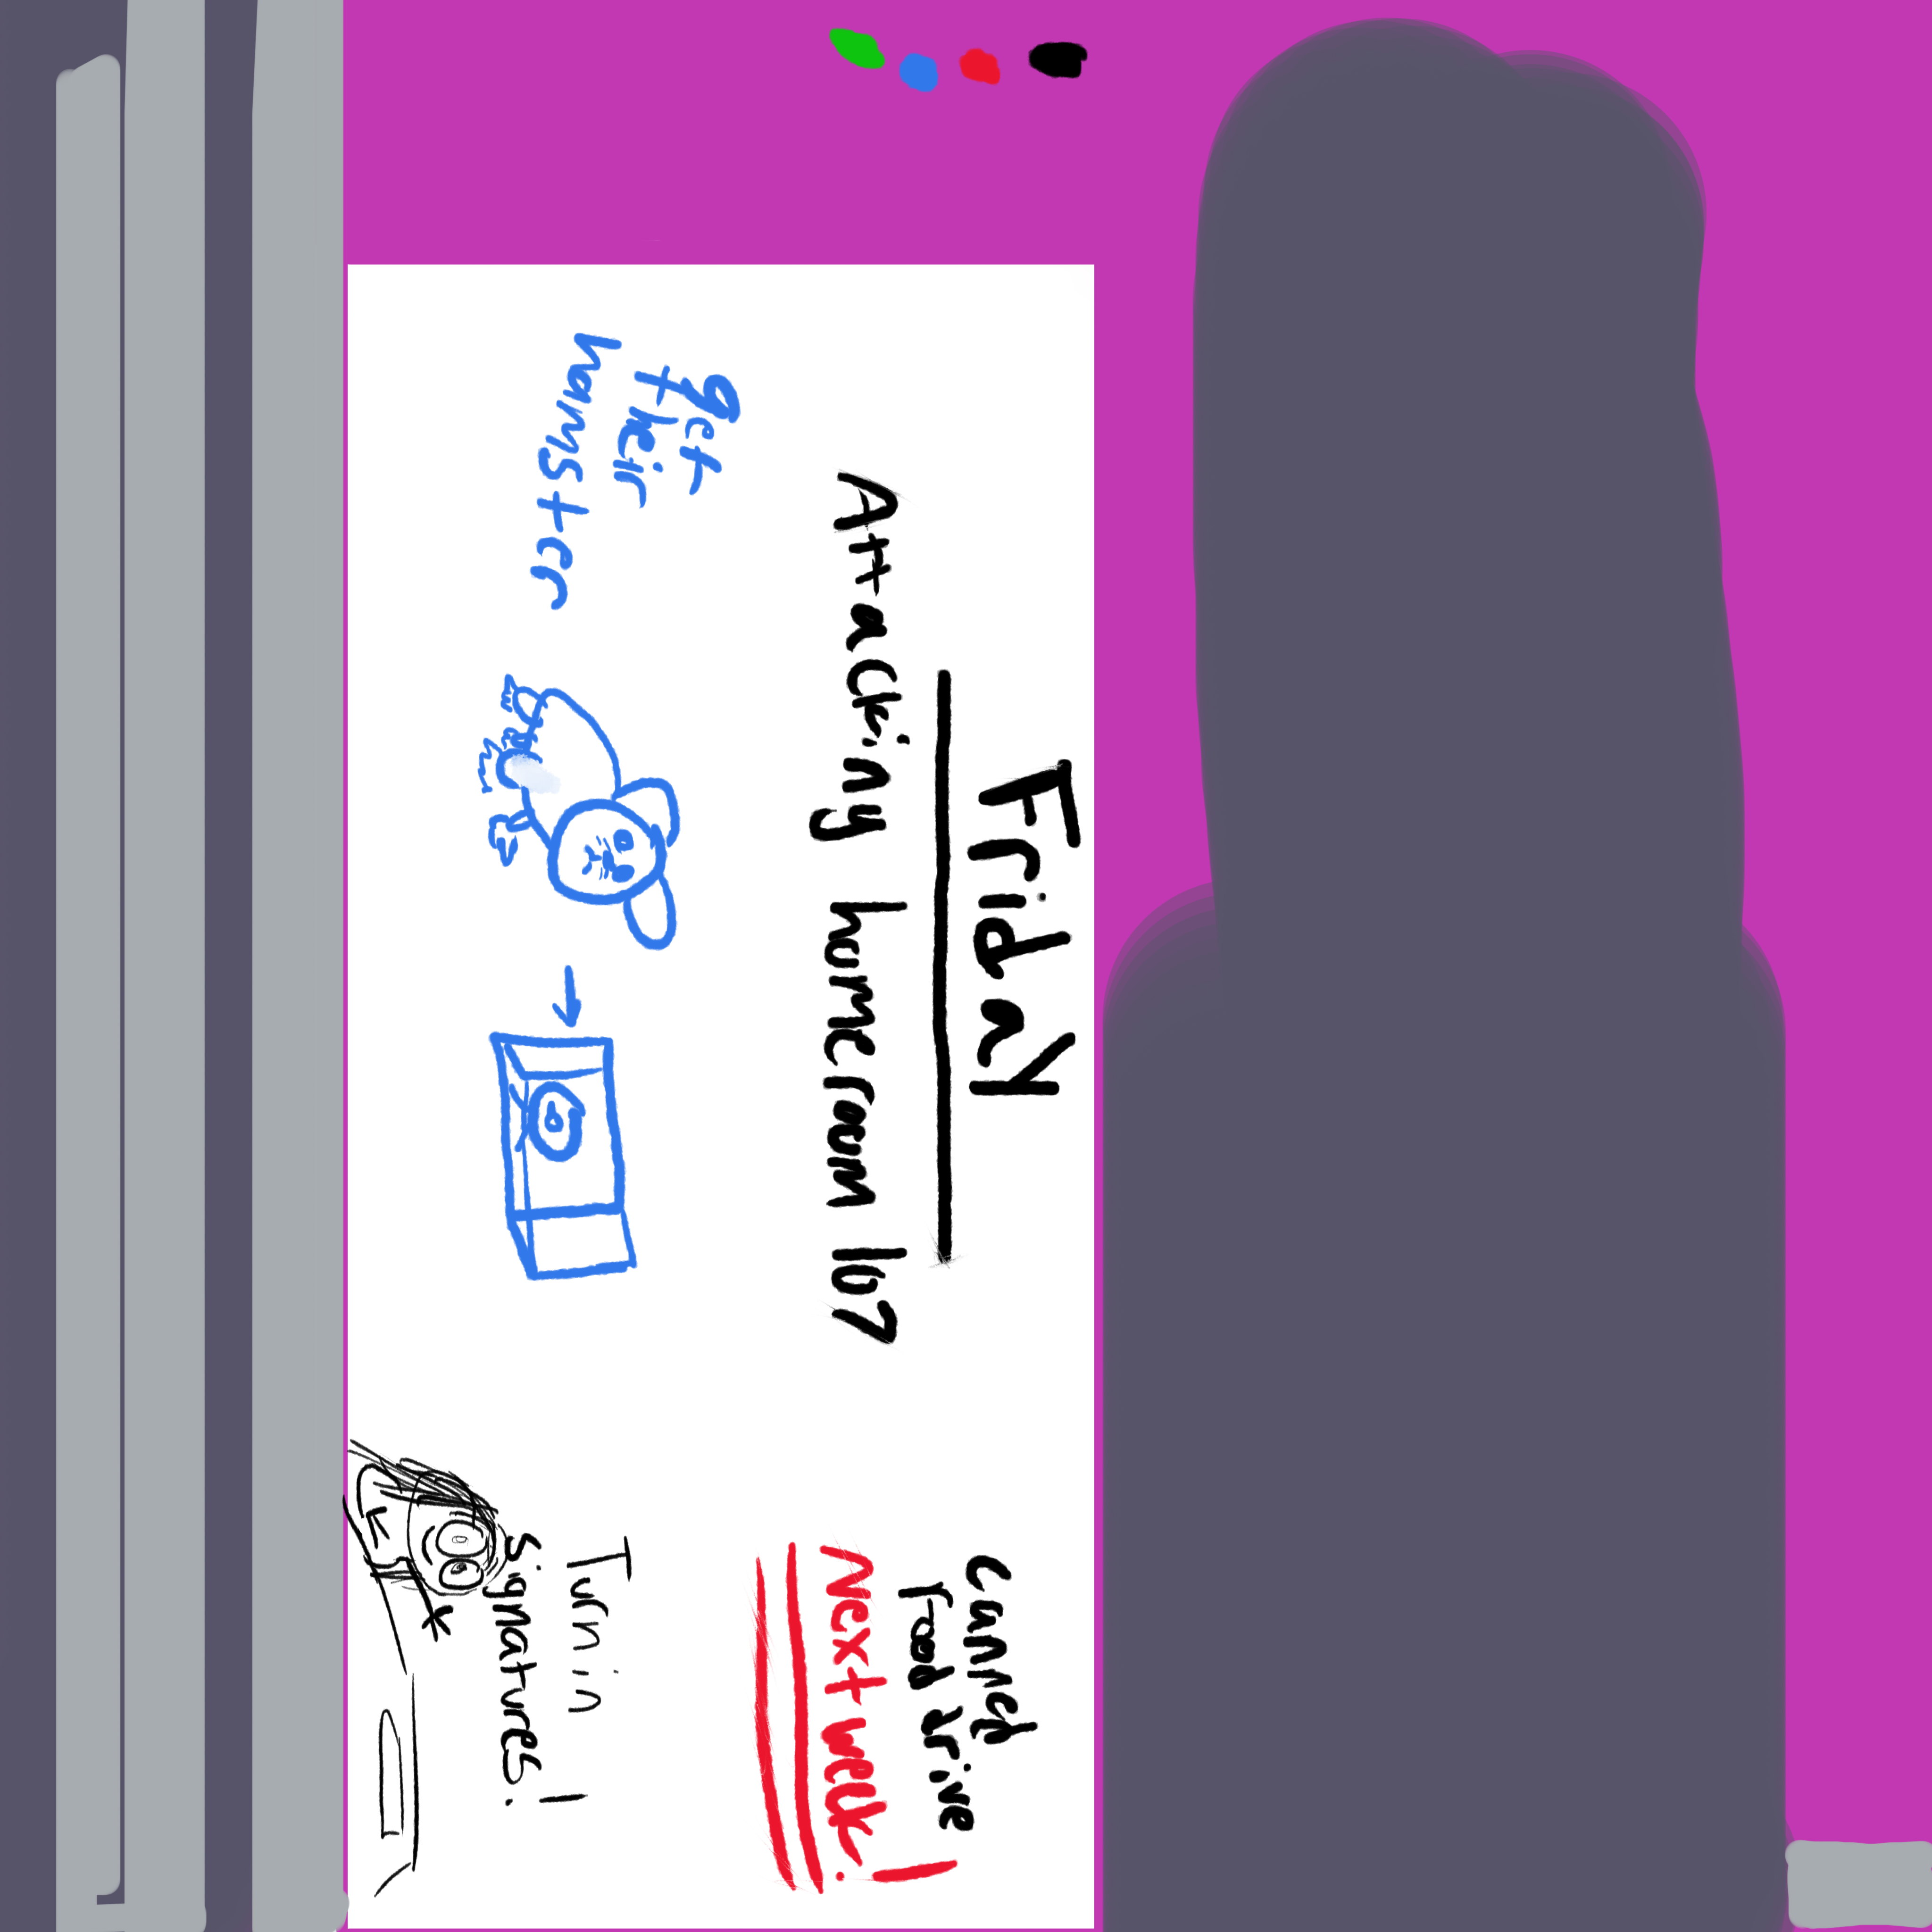 Friday
Attacking homeroom 167
get
their
hamster
canned
food drive
Next week!
Turn in
signatures!